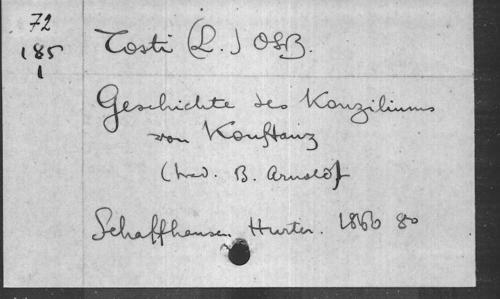 72
185
1
Tosti (L.) OSB.
Geschichte des Konziliums
von Konstanz
(trad. B. Arnold)
Schaffhausen Hurter. 1860 80